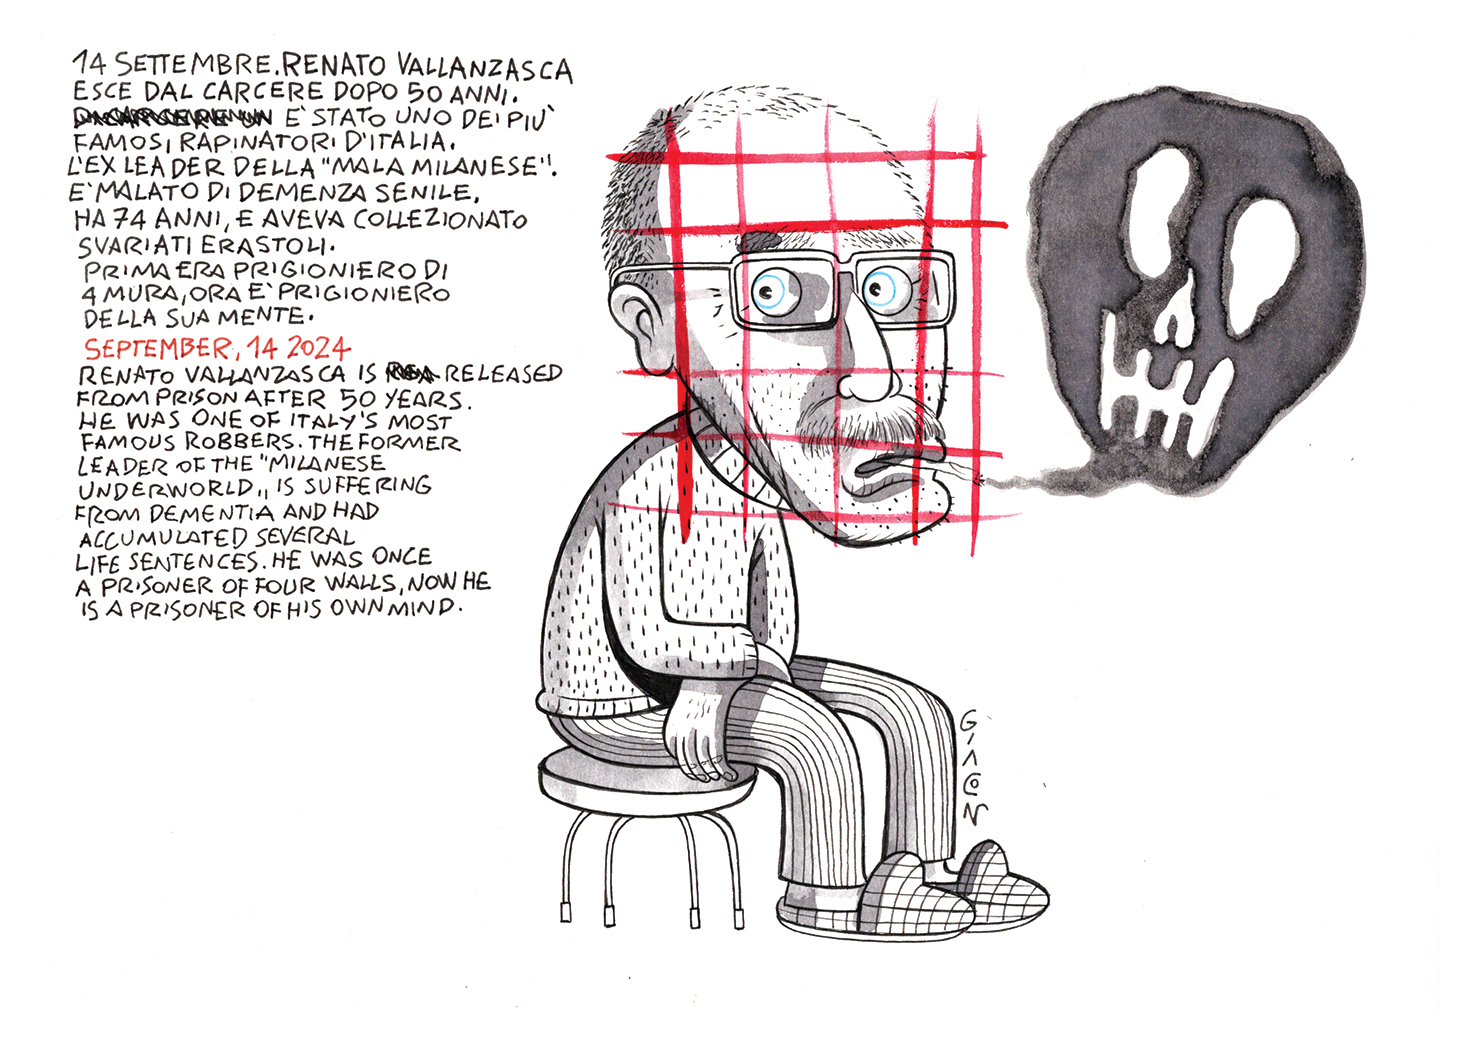 14 SETTEMBRE. RENATO VALLANZASCA
ESCE DAL CARCERE DOPO 50 ANNI.
E' STATO UNO DEI PIU'
FAMOSI RAPINATORI D'ITALIA.
L'EX LEADER DELLA "MALA MILANESE".
E' MALATO DI DEMENZA SENILE,
HA 74 ANNI, E AVEVA COLLEZIONATO
SVARIATI ERASTOLI.
PRIMA ERA PRIGIONIERO DI
4 MURA, ORA E' PRIGIONIERO
DELLA SUA MENTE.
SEPTEMBER, 14 2024
RENATO VALLANZASCA IS RELEASED
FROM PRISON AFTER 50 YEARS.
HE WAS ONE OF ITALY'S MOST
FAMOUS ROBBERS. THE FORMER
LEADER OF THE "MILANESE
UNDERWORLD„ IS SUFFERING
FROM DEMENTIA AND HAD
ACCUMULATED SEVERAL
LIFE SENTENCES. HE WAS ONCE
A PRISONER OF FOUR WALLS, NOW HE
IS A PRISONER OF HIS OWN MIND.
GIACON